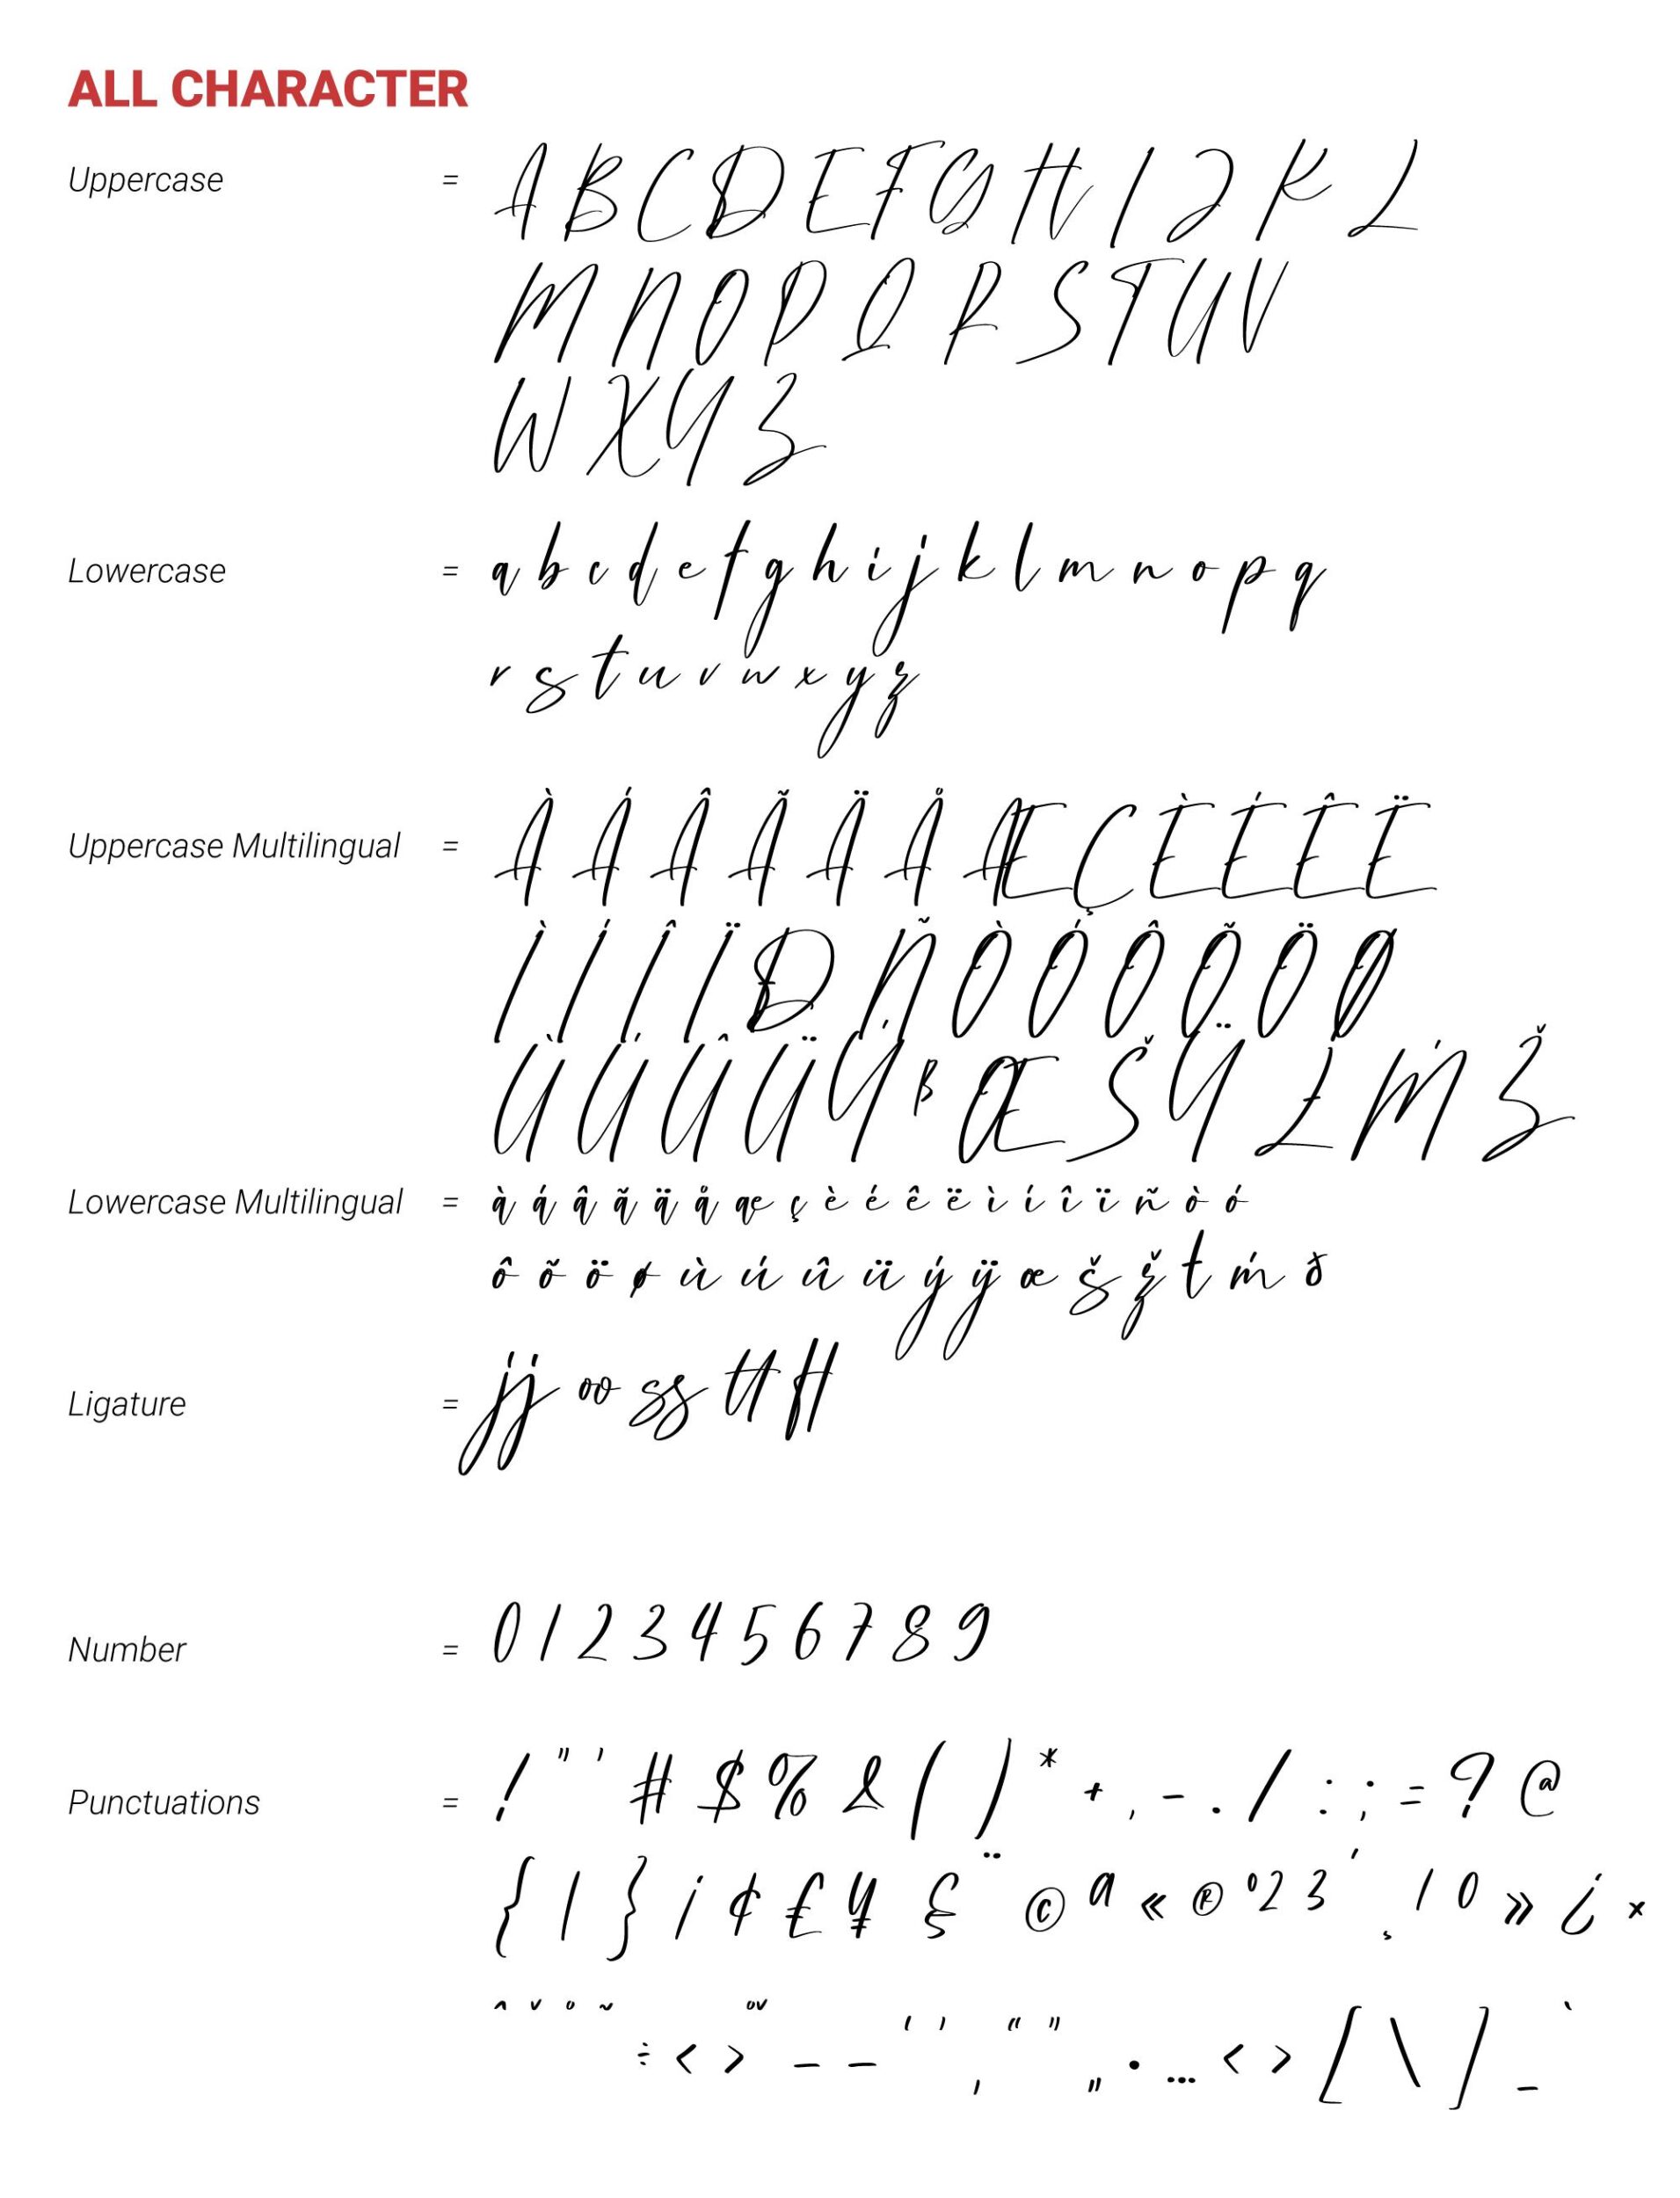 ALL CHARACTER
Uppercase = A B C D E F G H I J K L
M N O P Q R S T U V
W X Y Z
Lowercase = a b c d e f g h i j k l m n o p q
r s t u v w x y z
Uppercase Multilingual = À Á Â Ã Ä Å Æ Ç È É Ê Ë
Ì Í Î Ï Ð Ñ Ò Ó Ô Õ Ö Ø
Ù Ú Û Ü Ý ß Œ Š Ÿ Ł Ḿ Ž
Lowercase Multilingual = à á â ã ä å æ ç è é ê ë ì í î ï ñ ò ó
ô õ ö ø ù ú û ü ý ÿ œ š ž ł ḿ ð
Ligature = jj oo ss tt ff
Number = 0 1 2 3 4 5 6 7 8 9
Punctuations = ! " ' # $ % & ( ) * + , - . / : ; = ? @
{ | } ¡ ¢ £ ¥ § ¨ © ª « ® ° ² ³ ´ ¸ ¹ º » ¿ ×
ˆ ˇ ˚ ˜ ÷ < > – — ‘ ’ ‚ “ ” „ • … ‹ › [ \ ] _ `